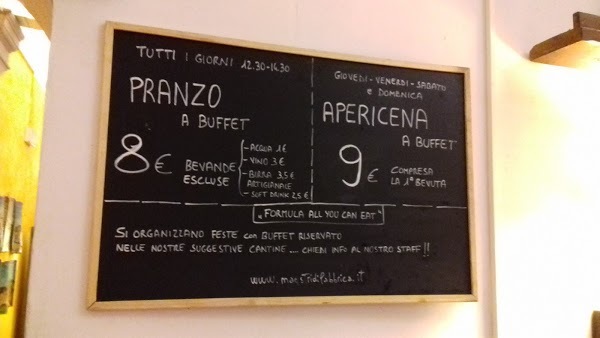 TUTTI I GIORNI 12.30-14.30
PRANZO
A BUFFET
8€
BEVANDE
ESCLUSE
- ACQUA 1€
- VINO 3€
- BIRRA 3,5€
ARTIGIANALE
- SOFT DRINK 2,5€
GIOVEDI - VENERDI - SABATO
e DOMENICA
APERICENA
A BUFFET
9€
COMPRESA
LA 1ª BEVUTA
"FORMULA ALL YOU CAN EAT"
SI ORGANIZZANO FESTE con BUFFET RISERVATO
NELLE NOSTRE SUGGESTIVE CANTINE .... CHIEDI INFO AL NOSTRO STAFF!!
www.maestridifabbrica.it